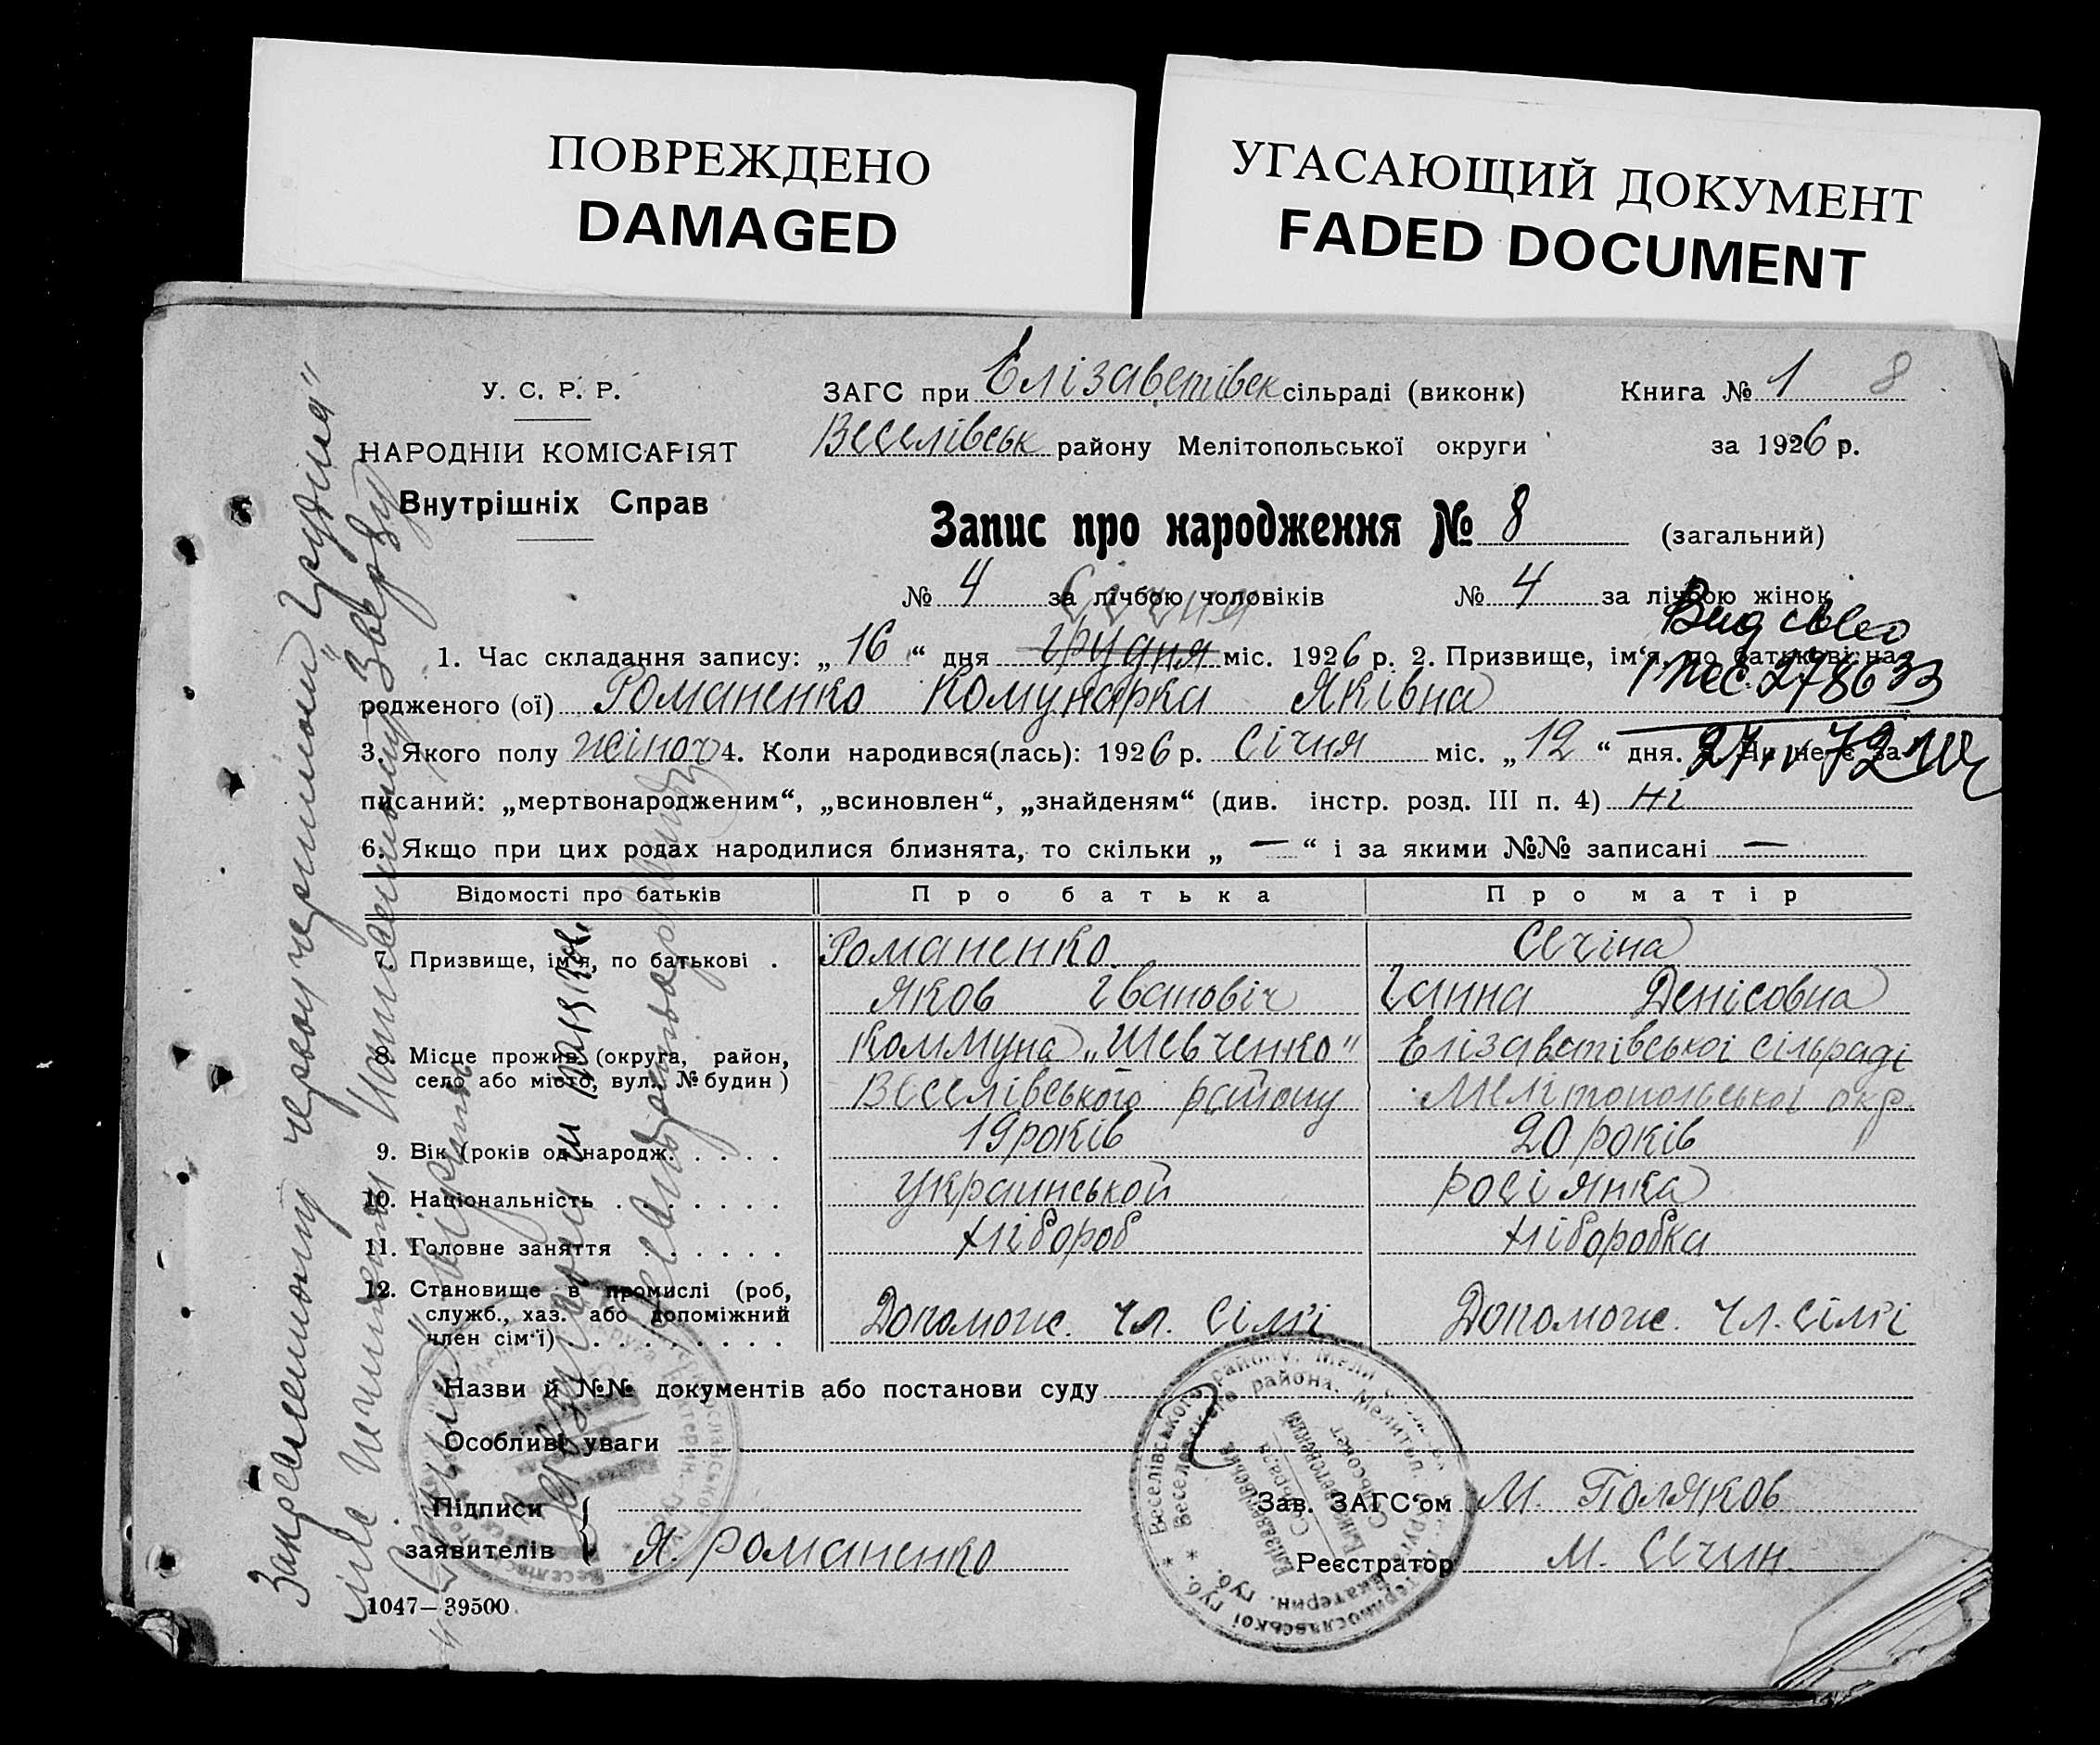 ПОВРЕЖДЕНО
DAMAGED
УГАСАЮЩИЙ ДОКУМЕНТ
FADED DOCUMENT
У. С. Р. Р.
НАРОДНІЙ КОМІСАРІЯТ
Внутрішніх Справ
ЗАГС при Елізаветівск сільраді (виконк)
Книга № 1 8
Веселівськ району Мелітопольської округи
за 1926 р.
Запис про народження № 8 (загальний)
№ 4 за лічбою чоловіків № 4 за лічбою жінок
Січня
1. Час складання запису: „16“ дня грудня міс. 1926 р. 2. Призвище, ім'я, по батькові на-
родженого (ої) Романенко Комунарка Яківна
278633
3. Якого полу жіноч 4. Коли народився(лась): 1926 р. Січня міс. „12“ дня. 5. Чи не є за-
писаний: „мертвонародженим“, „всиновлен“, „знайденям“ (див. інстр. розд. III п. 4) Ні
6. Якщо при цих родах народилися близнята, то скільки „—“ і за якими №№ записані —
Відомості про батьків Про батька Про матір
7. Призвище, ім'я, по батькові . Романенко Сечіна
Яков Іванович Ганна Денісовна
8. Місце прожив. (округа, район, село або місто, вул. № будин) Коммуна „Шевченко“ Елізаветівської сільраді
Веселівського району Мелітопольської окр.
9. Вік (років од народж. . . . . 19 років 20 років
10. Національність . . . . . . . Украинськой росіянка
11. Головне заняття . . . . . . Хлібороб Хліборобка
12. Становище в промислі (роб, служб., хаз. або допоміжний член сім'ї) . . . . . . . . Допомож. чл. сімї Допомож. чл. сімї
Назви й №№ документів або постанови суду
Особливі уваги
Підписи
заявителів Я. Романенко
Зав. ЗАГС'ом М. Поляков
Реєстратор М. Сечин
1047—39500
Закресленому червоу чернилом „Грудня“